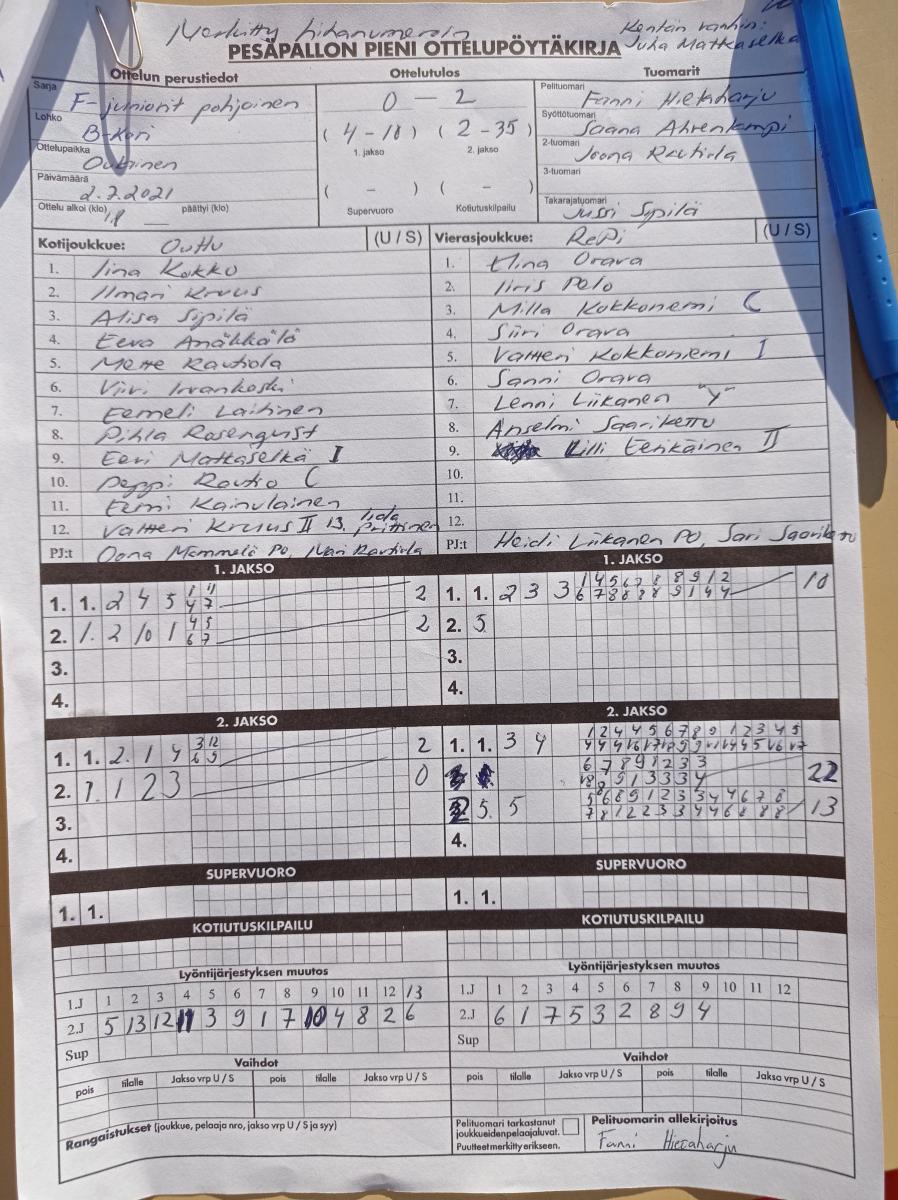 Merkitty hihanumeroin
Kentän vanhin:
Juha Matkaselkä
PESÄPALLON PIENI OTTELUPÖYTÄKIRJA
Ottelun perustiedot Ottelutulos Tuomarit
Sarja F-juniorit pohjoinen
Lohko B-kori
Ottelupaikka Outinen
Päivämäärä 2.7.2021
Ottelu alkoi (klo) 18 päättyi (klo)
0 - 2
(4-10) (2-35)
1. jakso 2. jakso
( - ) ( - )
Supervuoro Kotiutuskilpailu
Pelituomari Fanni Hietaharju
Syöttötuomari Saana Ahrenkampi
2-tuomari Joona Rautiola
3-tuomari
Takarajatuomari Jussi Sipilä
Kotijoukkue: OuHu (U / S)
1. Iina Kokko
2. Ilmari Kruus
3. Alisa Sipilä
4. Eeva Anäkkälä
5. Mette Rautiola
6. Viivi Irvankoski
7. Eemeli Laitinen
8. Pihla Rosenqvist
9. Eeri Matkaselkä I
10. Peppi Rautio C
11. Eemi Kainulainen
12. Valtteri Kruus II 13. Iida Prittinen
PJ:t Oona Mämmelä PO, Mari Rautiola
Vierasjoukkue: RePi (U / S)
1. Elina Orava
2. Iiris Pelo
3. Milla Kokkoniemi C
4. Siiri Orava
5. Valtteri Kokkoniemi I
6. Sanni Orava
7. Lenni Liikanen "Y"
8. Anselmi Saariketto
9. Lilli Eerikäinen II
10.
11.
12.
PJ:t Heidi Liikanen PO, Sari Saariketto
1. JAKSO 1. JAKSO
1. 1. 2 4 5 1 11 2
4 7
2. 1. 2 10 1 4 5 2
6 7
3.
4.
1. 1. 2 3 3 1 4 5 6 7 8 8 9 1 2 10
6 7 8 8 8 8 9 1 4 4
2. 5
3.
4.
2. JAKSO 2. JAKSO
1. 1. 2. 1 4 3 12 2
6 5
2. 1. 1 2 3 0
3.
4.
1. 1. 3 4 1 2 4 4 5 6 7 8 9 1 2 3 4 5
6 7 8 9 1 2 3 3 22
8 9 1 3 3 3 4
2. 5. 5 5 6 8 9 1 2 3 3 4 4 6 7 8 13
7 8 1 2 2 3 3 4 4 6 8 8 8
4.
SUPERVUORO SUPERVUORO
1. 1. 1. 1.
KOTIUTUSKILPAILU KOTIUTUSKILPAILU
Lyöntijärjestyksen muutos Lyöntijärjestyksen muutos
1.J 1 2 3 4 5 6 7 8 9 10 11 12 13
2.J 5 13 12 11 3 9 1 7 10 4 8 2 6
Sup
1.J 1 2 3 4 5 6 7 8 9 10 11 12
2.J 6 1 7 5 3 2 8 9 4
Sup
Vaihdot Vaihdot
pois tilalle Jakso vrp U / S pois tilalle Jakso vrp U / S
pois tilalle Jakso vrp U / S pois tilalle Jakso vrp U / S
Rangaistukset (joukkue, pelaaja nro, jakso vrp U / S ja syy)
Pelituomari tarkastanut
joukkueidenpelaajaluvat.
Puutteet merkitty erikseen.
Pelituomarin allekirjoitus
Fanni Hietaharju